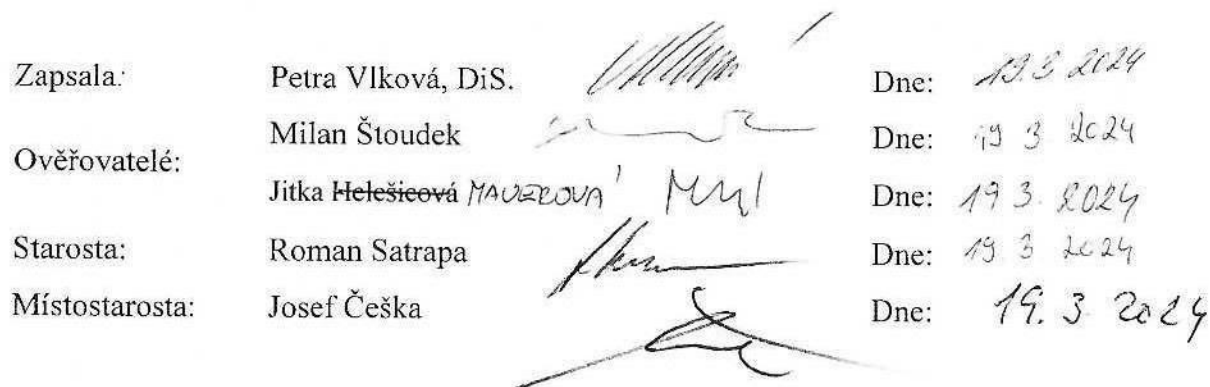 Zapsala: Petra Vlková, DiS. Dne: 19.3 2024
Milan Štoudek Dne: 19 3 2024
Ověřovatelé:
Jitka Helešicová MAUEROVÁ Dne: 19 3. 2024
Starosta: Roman Satrapa Dne: 19 3 2024
Místostarosta: Josef Češka Dne: 19. 3 2024